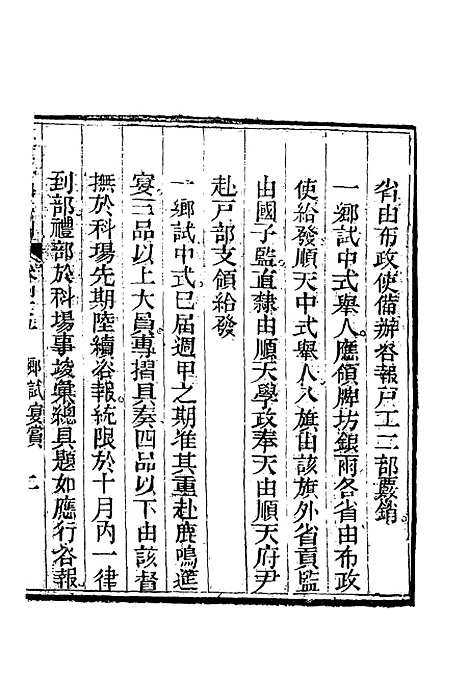 省由布政使備辦咨報戸工二部覈銷
一鄉試中式舉人應領牌坊銀兩各省由布政
使給發順天中式舉人八旗由該旗外省貢監
由國子監直隸由順天學政奉天由順天府尹
赴戸部支領給發
一鄉試中式已屆週甲之期准其重赴鹿鳴筵
宴三品以上大員專摺具奏四品以下由該督
撫於科場先期陸續咨報統限於十月內一律
到部禮部於科場事竣彙總具題如應行咨報
鄉試宴賞 二